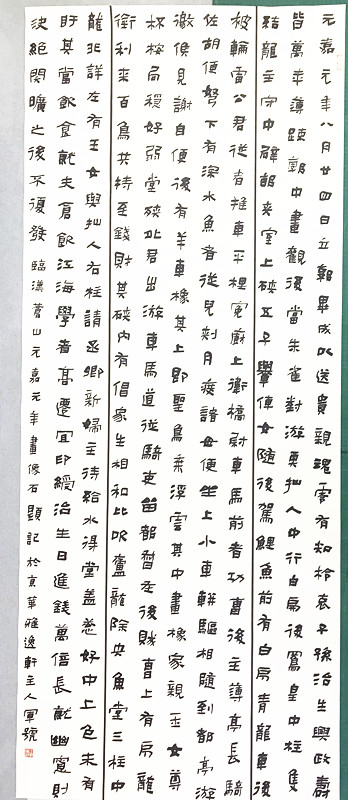 元嘉元年八月廿四日立郭畢成以送貴親魂零有知柃哀子孫治生興政壽
皆萬年薄踈郭中畫觀後當朱雀對游仙人中行白虎後鳳皇中柱隻
結龍主守中辟邪央室上硤五子轝僮女隨後駕鯉魚前有白虎青龍車後
被輪雷公君從者推車平梩冤厨上衛橋尉車馬前者功曹後主薄亭長騎
佐胡使弩下有深水魚者從兒刺舟渡諸母便坐上小車軿驅相隨到都亭游
徼候見謝自便後有羊車橡其上即聖鳥乘浮雲其中畫橡家親玉女尊
杯桉局檼好弱堂硤外君出游車馬道從騎吏留都督在後賊曹上有虎龍
銜利來百鳥共持至錢財其硤內有倡家生相和比吹廬龍除央魚堂三柱中
龍非詳左有玉女與仙人右柱請丞卿新婦主待給水將堂蓋好中上色末有
盱其當飲食就夫倉飲江海學者高遷宜印綬治生日進錢萬倍長就幽冥則
決絕閉曠之後不復發 臨漢蒼山元嘉元年畫像石題記於京華雅逸軒主人軍號